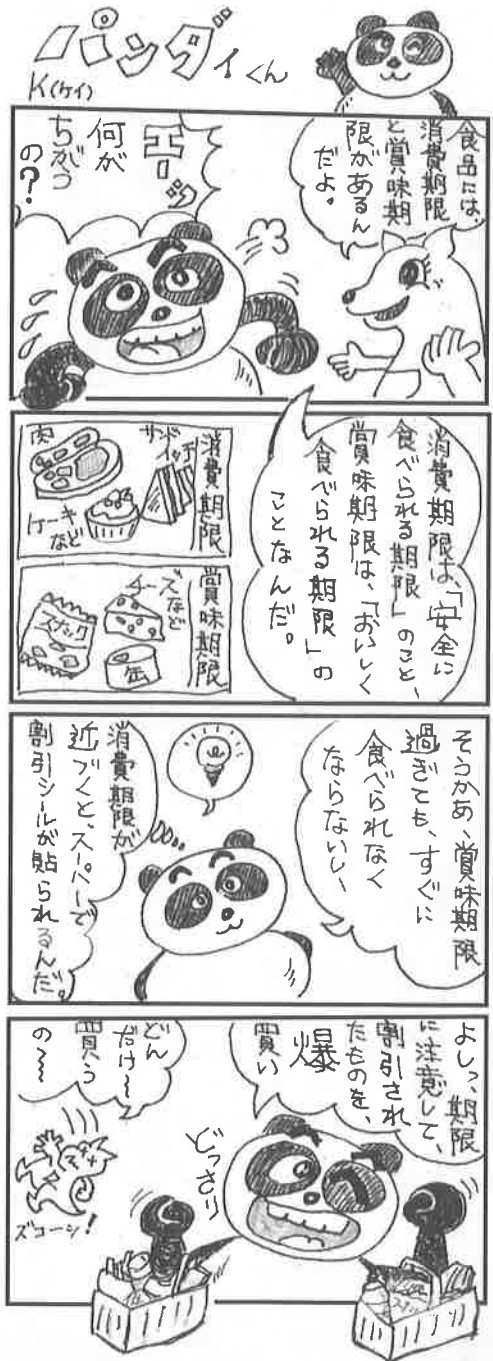 パンダイくん
K(ケイ)
食品には、
消費期限
と賞味期
限があるん
だよ。
エーッ
何が
ちがう
の?
消費期限は、「安全に
食べられる期限」のこと、
賞味期限は、「おいしく
食べられる期限」の
ことなんだ。
消費期限
サンドイッチ
肉
ケーキ
など
賞味期限
チーズなど
スナック
缶
そうかあ、賞味期限
過ぎても、すぐに
食べられなく
ならないし、
消費期限が
近づくと、スーパーで
割引シールが貼られるんだ。
よしっ、期限
に注意して、
割引され
たものを、
爆
買い
どっさり
どん
だけ〜
買う
の〜
ズコーッ!